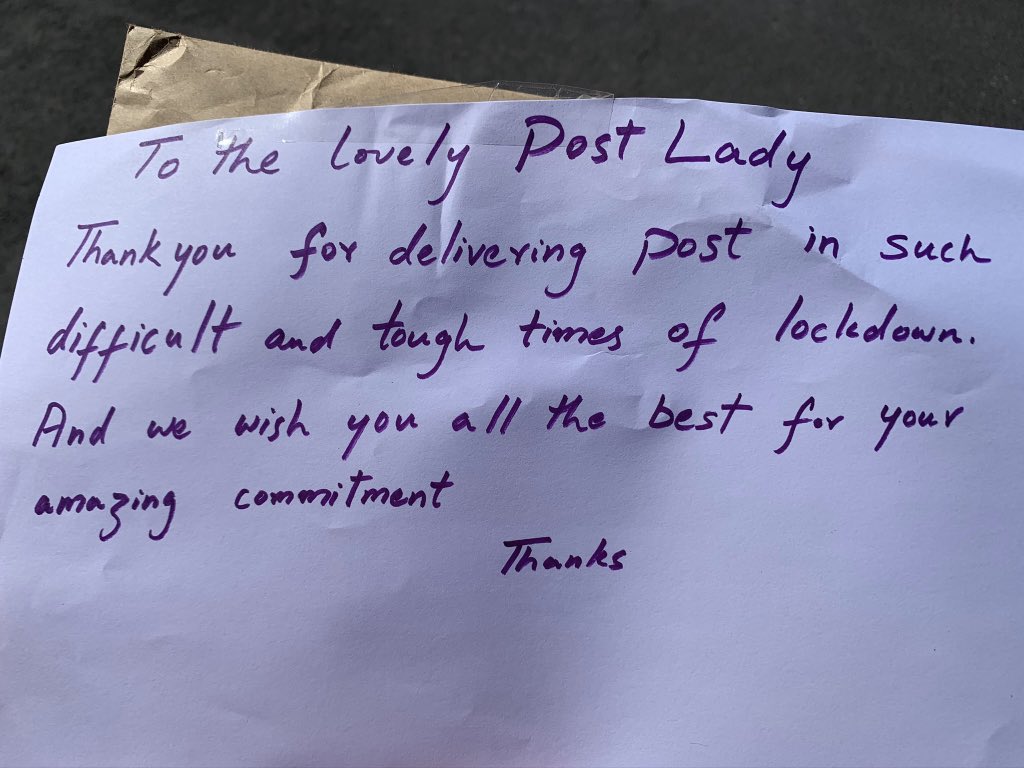 To the lovely Post Lady
Thank you for delivering post in such
difficult and tough times of lockdown.
And we wish you all the best for your
amazing commitment
Thanks